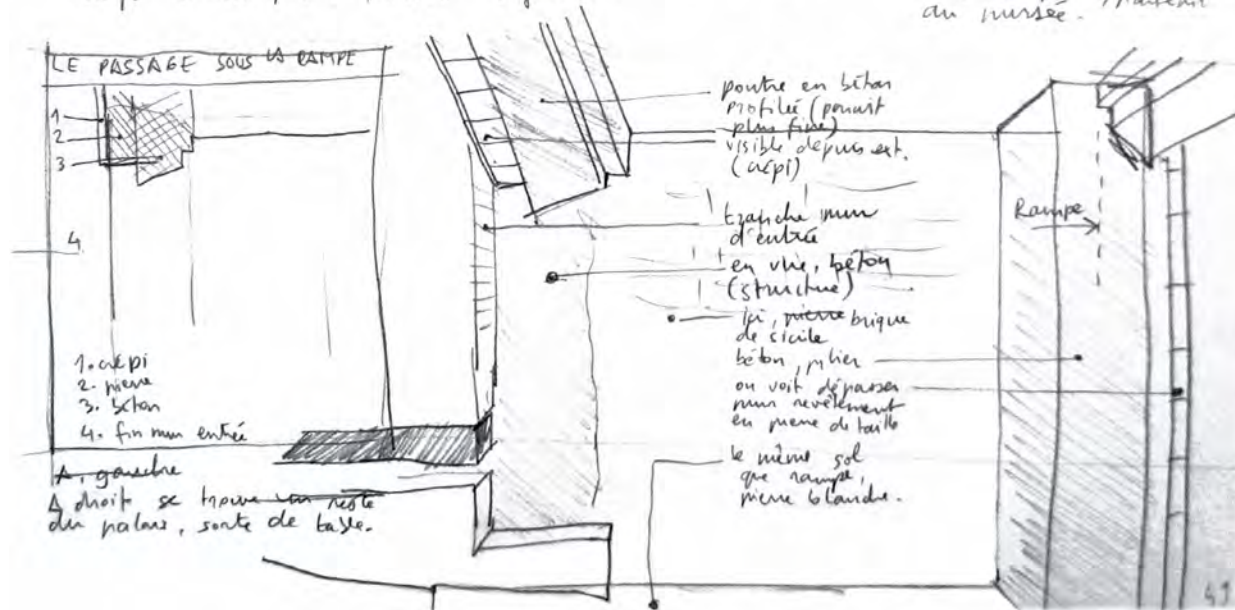 au musée.
LE PASSAGE SOUS LA RAMPE
1
2
3
4
1. crépi
2. pierre
3. béton
4. fin mur entrée
A gauche
A droit se trouve un reste
du palais, sorte de
poutre en béton
profilée (
plus fine)
visible depuis ext.
(crépi)
tranche mur
d'entrée
en vue, béton
(structure)
ici, pierre brique
de sicile
béton, pilier
on voit dépasser
mur revêtement
en pierre de taille
le même sol
que rampe,
pierre blanche.
Rampe
49